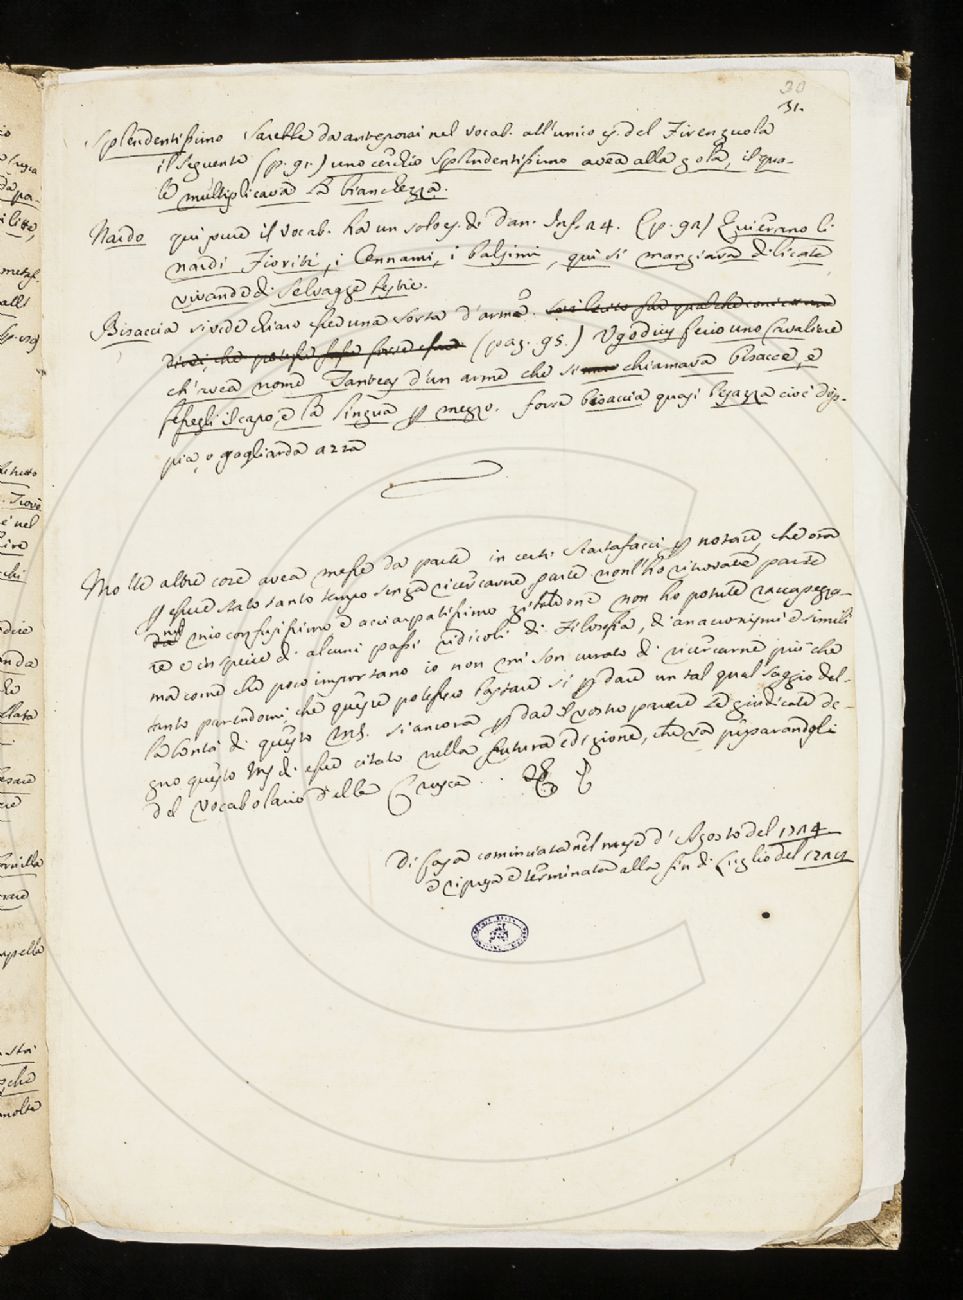 30
31.
Splendentissimo sarebbe da anteporsi nel vocab. all'unico es. del Firenzuola
il seguente (p. 91) uno cerchio splendentissimo avea alla gola, il qua-
le multiplicava la bianchezza.
Nardo qui pure il vocab. ha un solo es. di Dan. Inf. 24. (p. 92) Quì erano li
nardi fioriti, i cennami, i balsimi, qui si mangiava dilicate
vivande di selvagge bestie.
Bisaccia si vede chiaro esser una sorta d'arme.
(pag. 95.) Ugo ferio uno Cavaliere
ch'avea nome d'un arme che si chiamava bisacce, e
fessegli il capo, e la lingua p mezzo. forse bisaccia quasi bisazza cioè dop-
pia, o gagliarda azza
Molte altre cose avea messe da parte in certi scartafacci p notare, che ora
p esser stato tanto tempo senza ricercarne parte non l'ho ritrovate parte
nel mio confusissimo e acciarpatissimo zibaldone non ho potute raccapezza-
re e in specie di alcuni passi ridicoli di Filosofia, di anacronismi e simili
ma come che poco importano io non mi son curato di ricercarne più che
tanto parendomi, che queste potessero bastare si p dare un tal qual saggio del-
la bontà di questo MS. si ancora p dar il vostro parere se giudicate de-
gno questo MS. di esser citato nella futura edizione, che va preparandosi
del vocabolario della Crusca.
Di Casa cominciata nel mese d'Agosto del 1724
e ripresa e terminata alla fin di Luglio del